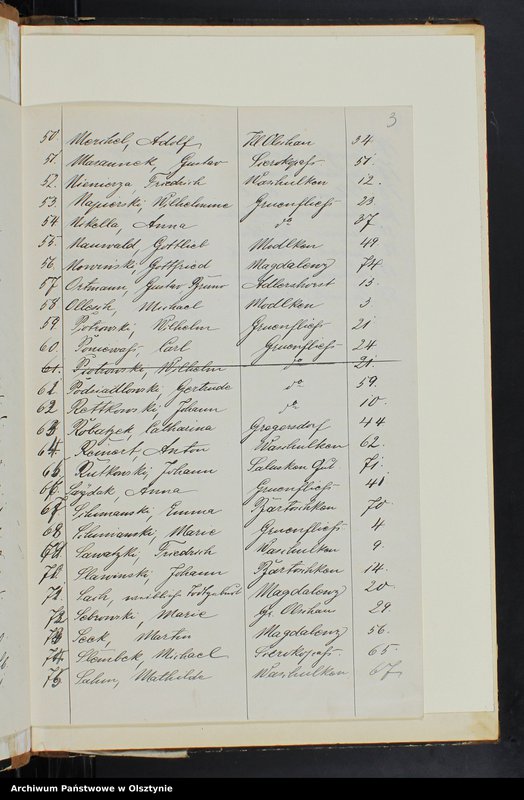 3
50. Merchel, Adolf Kl Olschau 34
51. Masannek, Gustav Sierokopaß 51.
52. Niemerza Friedrich Waschulken 12.
53 Napierski, Wilhelmine Gruenfließ 23
54 Nikella, Anna do 37
55. Nauwald Gottlieb Modlken 49
56. Nowinski, Gottfried Magdalenz 74.
57. Ortmann, Gustav Bruno Adlershorst 15.
58 Ollesch, Michael Modlken 3.
59. Piotrowski, Wilhelm Gruenfließ 21
60. Poniewaß, Carl Gruenfließ 24
61. Piotrowski, Wilhelm do 21.
61. Podsiadlowski, Gertrude do 59.
62 Rattkowski, Johann do 10.
63. Robatzek, Catharina Gregersdorf 44
64. Reinert Anton Waschulken 62.
65 Rutkowski, Johann Salusken Gut 71.
66 Anna Gruenfließ 41
67 Schimanski, Emma Bartoschken 70
68 Schimanski, Marie Gruenfließ 4
69 Sawatzki, Friedrich Waschulken 9.
Slawinski, Johann Bartoschken 14.
Sach, weiblich Todtgeburt Magdalenz 20.
Sobrowski, Marie Gr. Olschau 29.
Seek, Martin Magdalenz 56.
74 Slembek Michael Sierokopaß 65.
75 Salm, Mathilde Waschulken 67
Archiwum Państwowe w Olsztynie